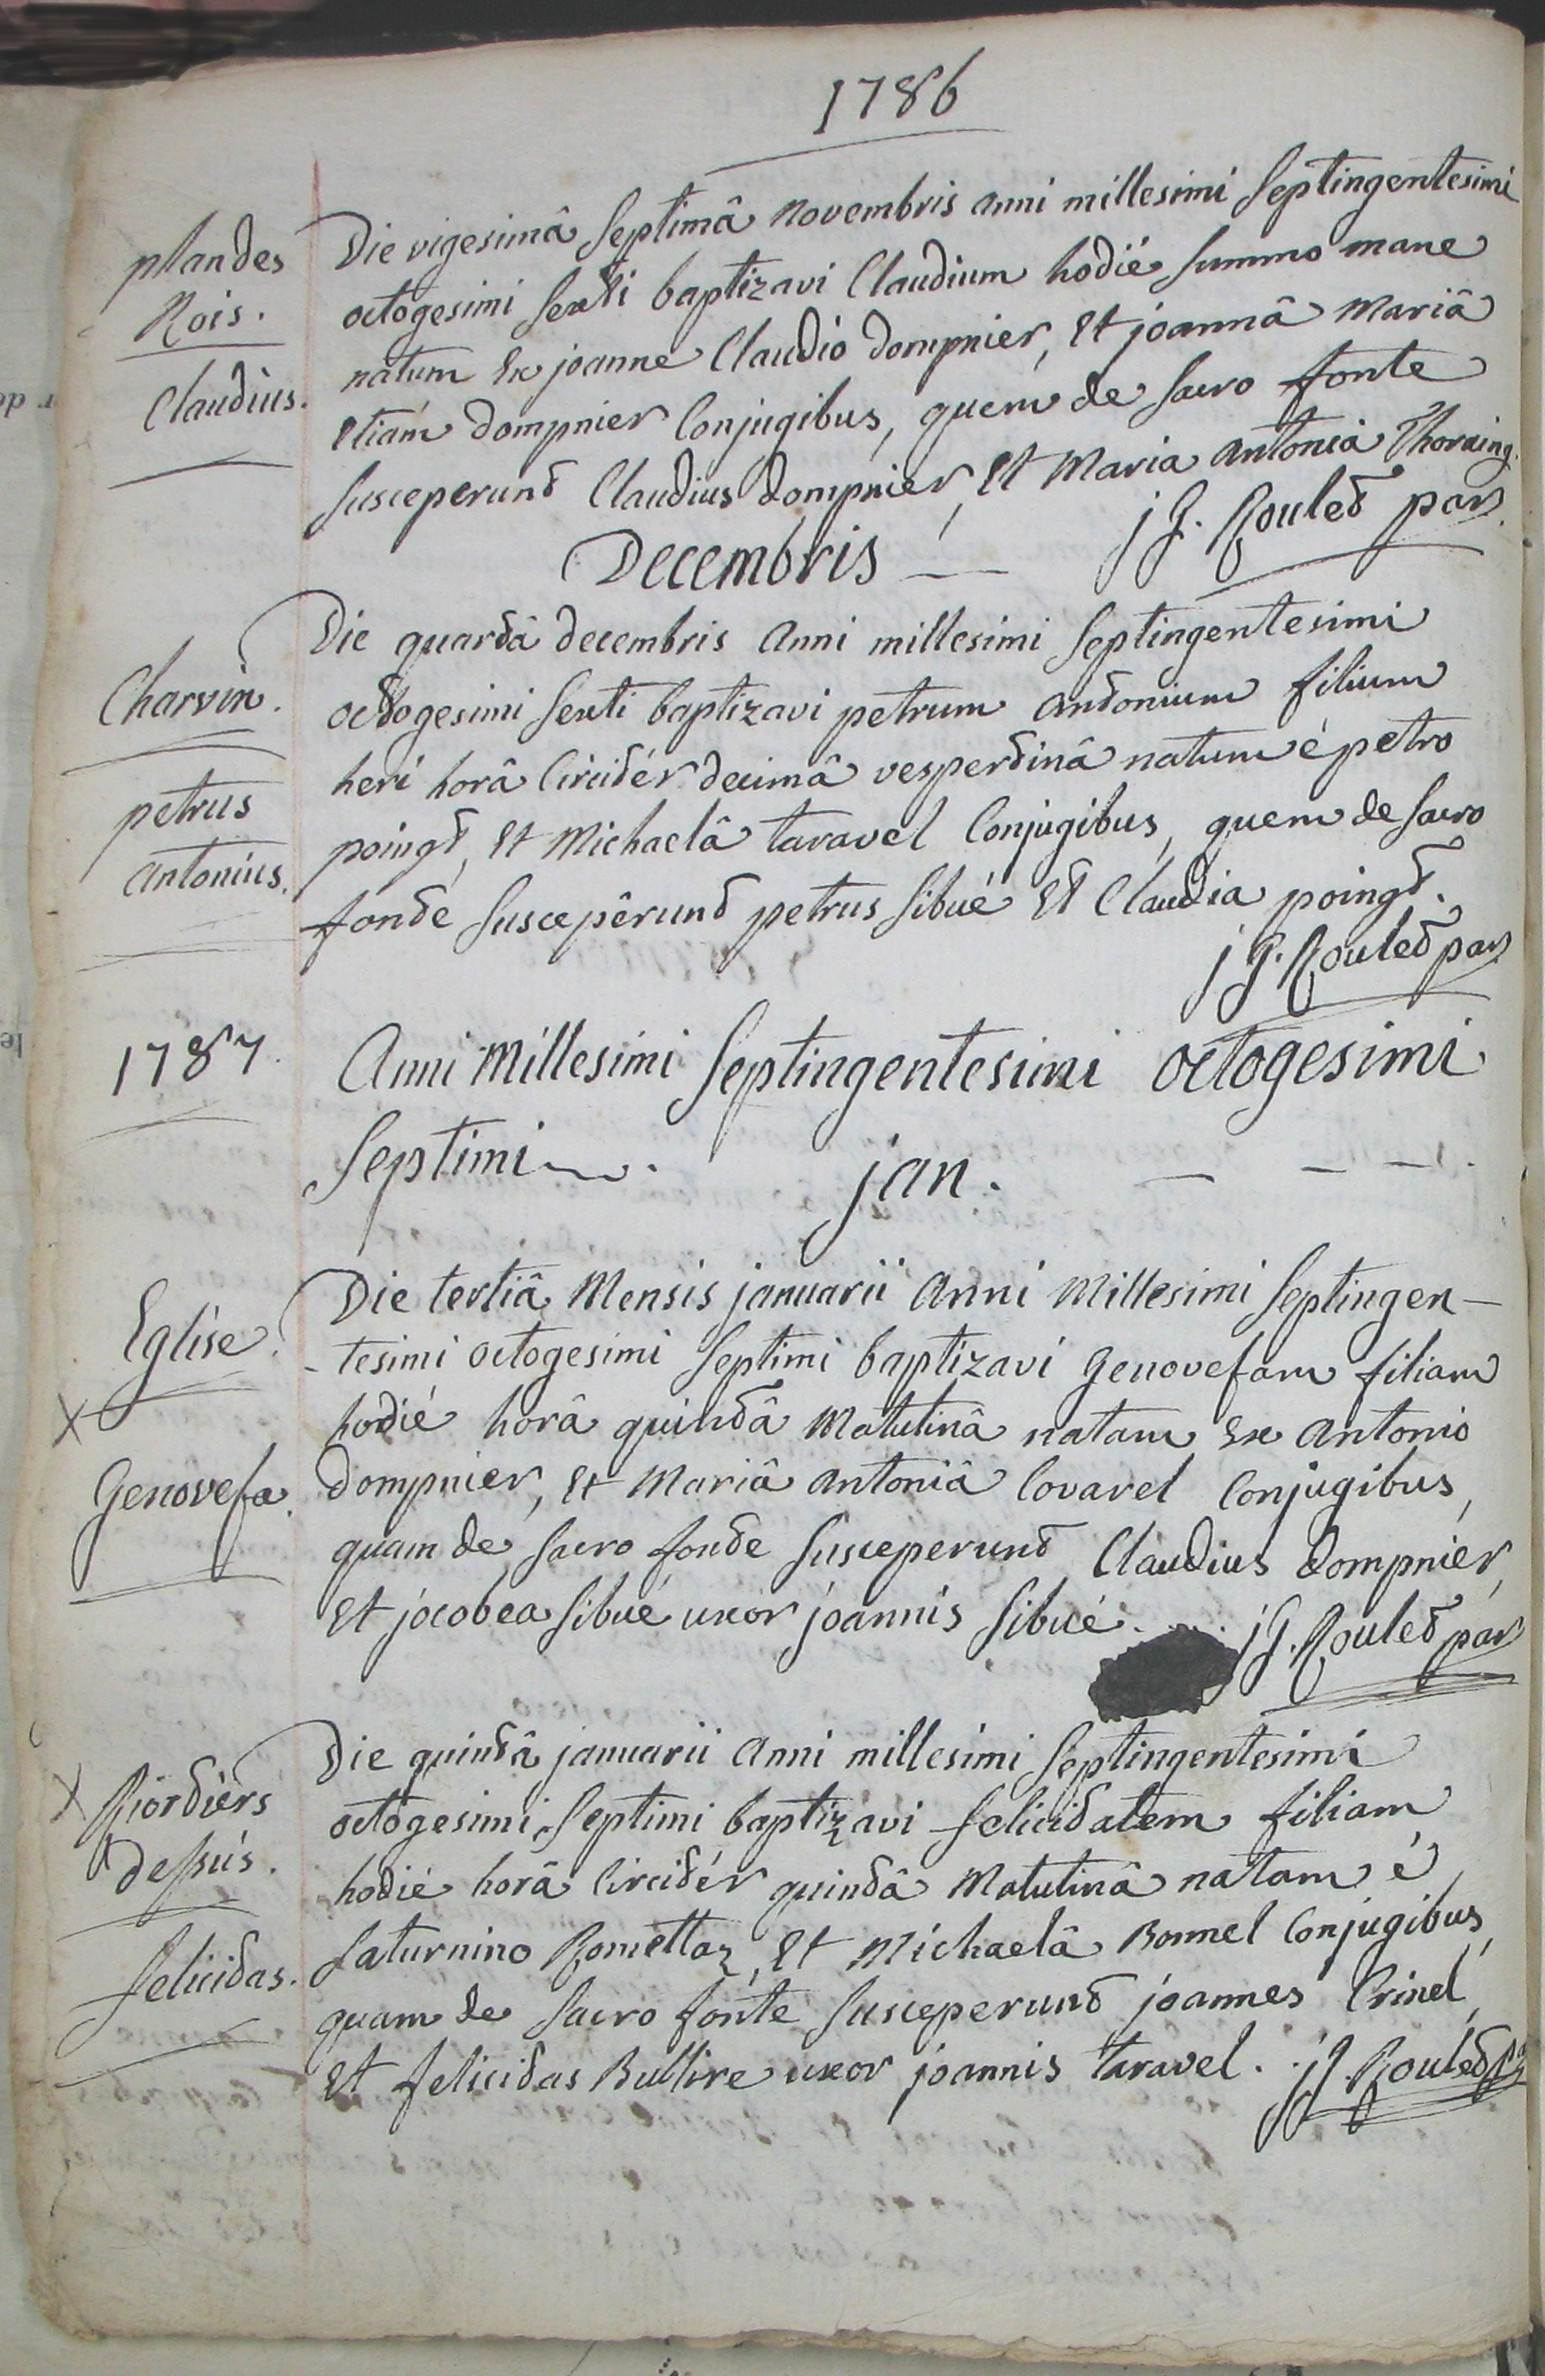 1786
plandes
Rois.
Claudius.
Die vigesimâ septimâ novembris anni millesimi septingentesimi
octogesimi sexti baptizavi Claudium hodiè summo mane
natum ex joanne Claudio dompnier, et joannâ mariâ
etiam dompnier Conjugibus, quem de sacro fonte
susceperunt Claudius dompnier, et maria antonia Thoraing.
j G. Roulet par.
Decembris
Charvin.
petrus
antonius.
Die quartâ decembris anni millesimi septingentesimi
octogesimi sexti baptizavi petrum antonium filium
heri horâ Circitér decimâ vespertinâ natum é petro
poingt, et Michaelâ taravel Conjugibus, quem de sacro
fonte suscepêrunt petrus sibué et Claudia poingt.
j G. Roulet par
1787.
Anni Millesimi septingentesimi octogesimi
septimi. jan.
Eglise.
X
Genovefa.
Die tertiâ Mensis januarii anni Millesimi septingen-
-tesimi octogesimi septimi baptizavi genovefam filiam
hodié horâ quintâ Matutinâ natam ex antonio
dompnier, et mariâ antoniâ Covarel Conjugibus,
quam de sacro fonte susceperunt Claudius dompnier,
et jacobea sibué uxor joannis sibué. j G. Roulet par
X Riortiers
dessus.
felicitas.
Die quintâ januarii anni millesimi septingentesimi
octogesimi septimi baptizavi felicitatem filiam
hodié horâ Circitér quintâ Matutinâ natam é
saturnino Romettaz, et Michaelâ Bonnel Conjugibus,
quam de sacro fonte susceperunt joannes Crinel,
et felicitas Bullire uxor joannis taravel. j G. Roulet